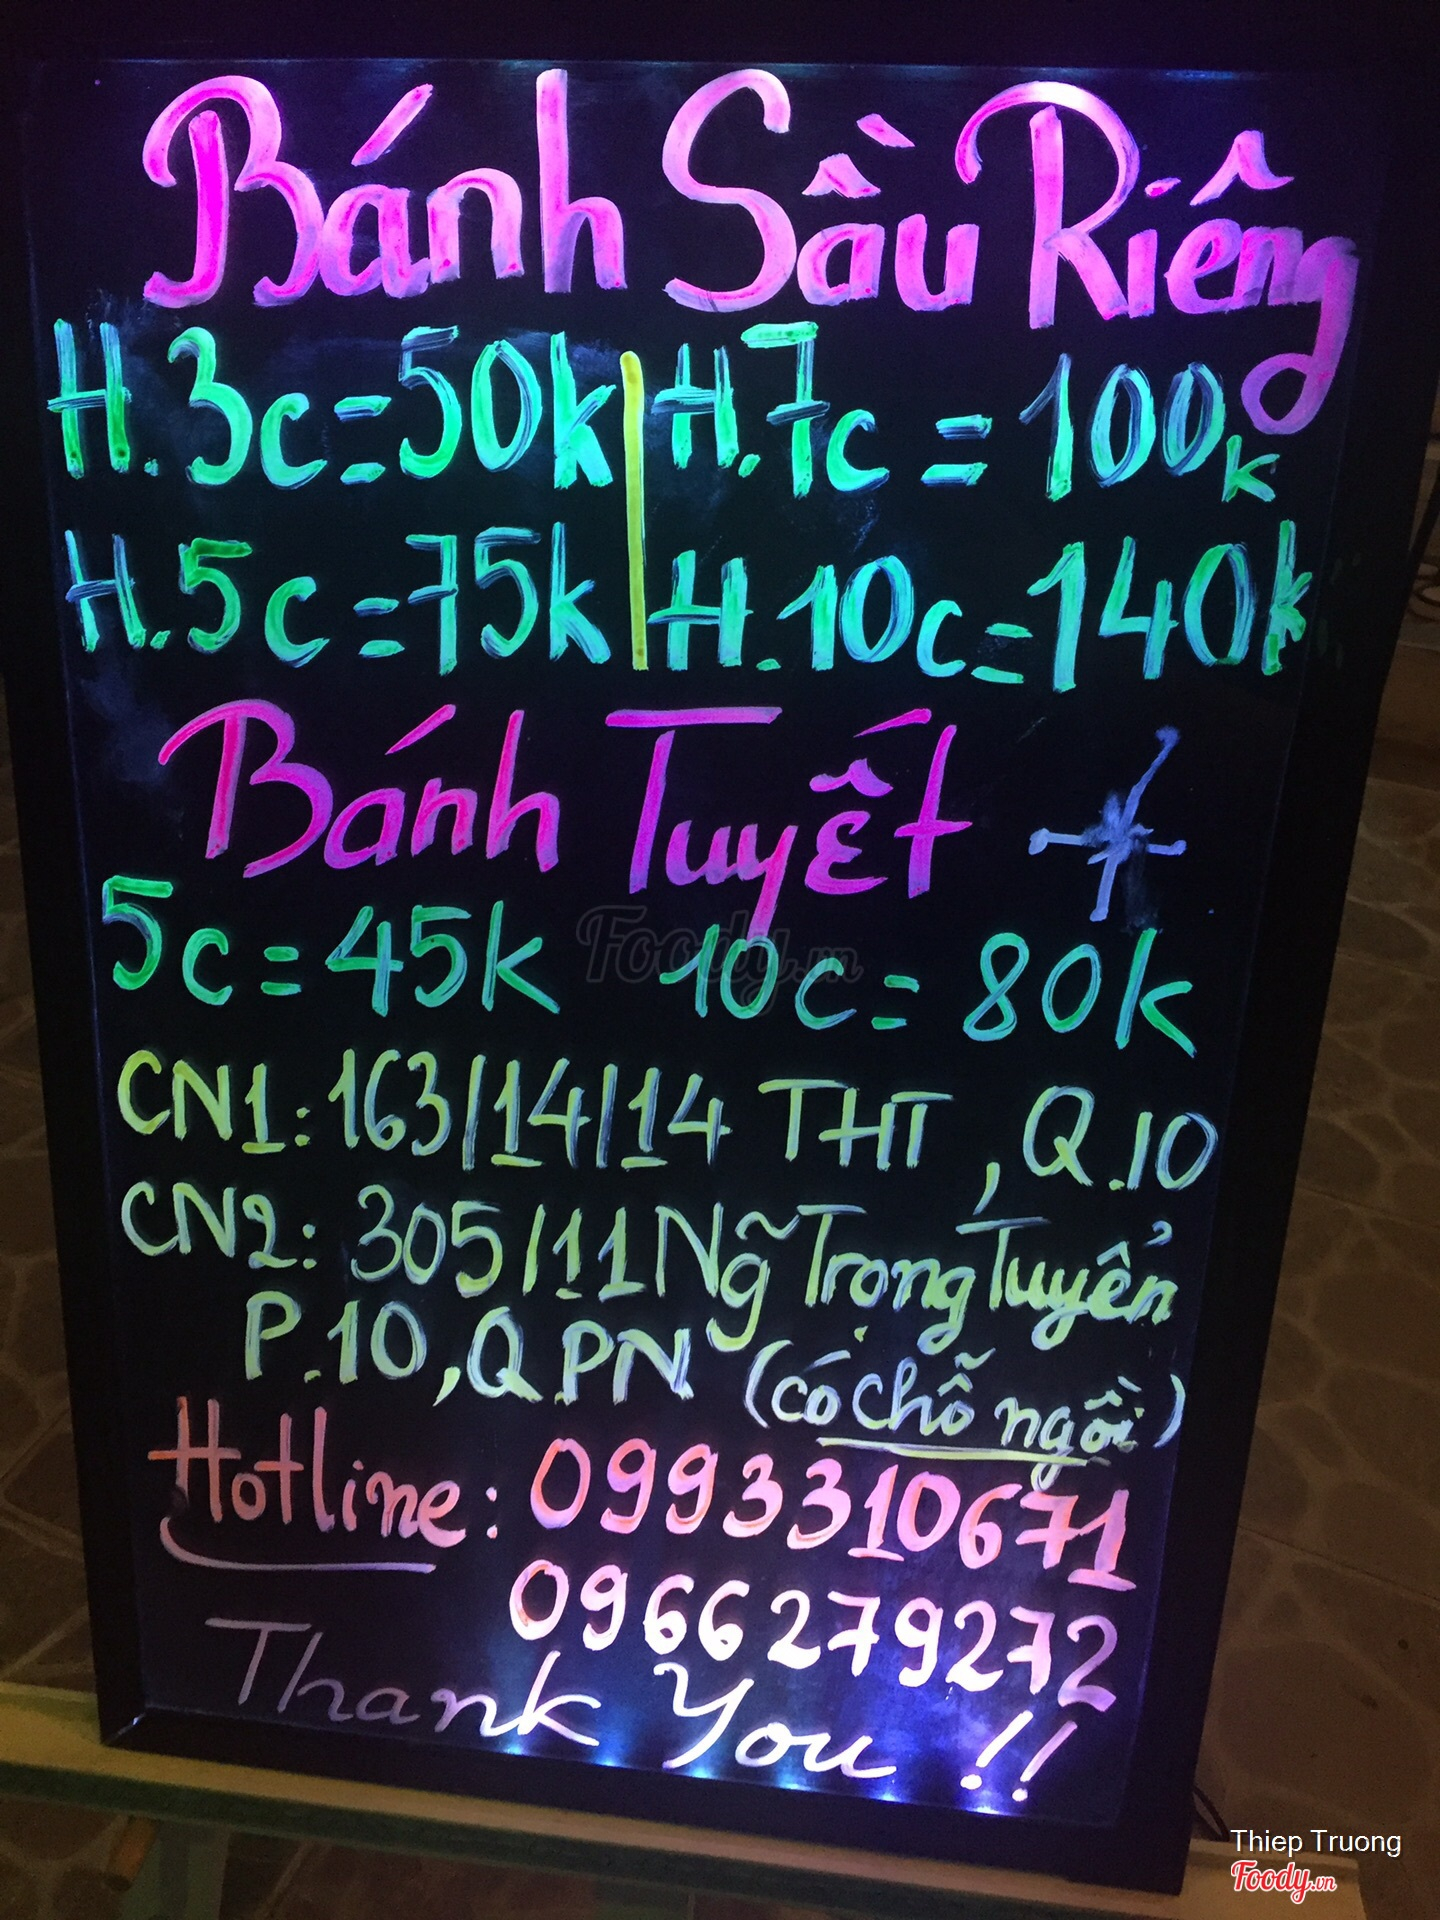 Bánh Sầu Riêng
H.3c=50k | H.7c = 100k
H.5c=75k | H.10c=140k
Bánh Tuyết
5c=45k 10c=80k
Foody.vn
CN1: 163/14/14 THT, Q.10
CN2: 305/11 Ng̃ Trọng Tuyển
P.10, Q.PN (có chỗ ngồi)
Hotline: 0993310671
0966279272
Thank You !!
Thiep Truong
Foody.vn